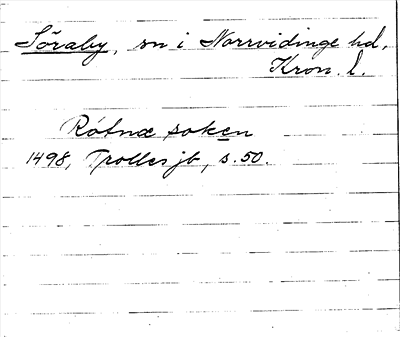 Söraby, sn i Norrvidinge hd,
Kron. l.
Rötnæ soken
1498, Trolles jb, s. 50.